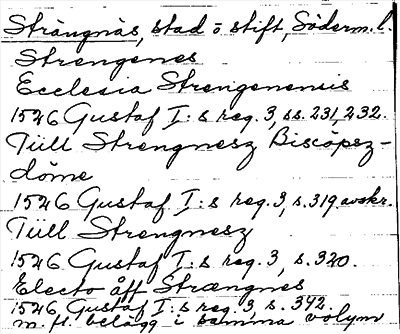 Strängnäs, stad o stift, Söderm. l.
Strengenes
Ecclesia Strengenensis
1526 Gustaf I:s reg. 3, ss. 231, 232.
Tüll Strengnesz Biscöpsz-
döme
1526 Gustaf I:s reg. 3, s. 319 avskr.
Tüll Strengnesz
1526 Gustaf I:s reg. 3, s. 320.
Electo åff Strængnes
1526 Gustaf I:s reg. 3, s. 342.
m. fl. belägg i samma volym